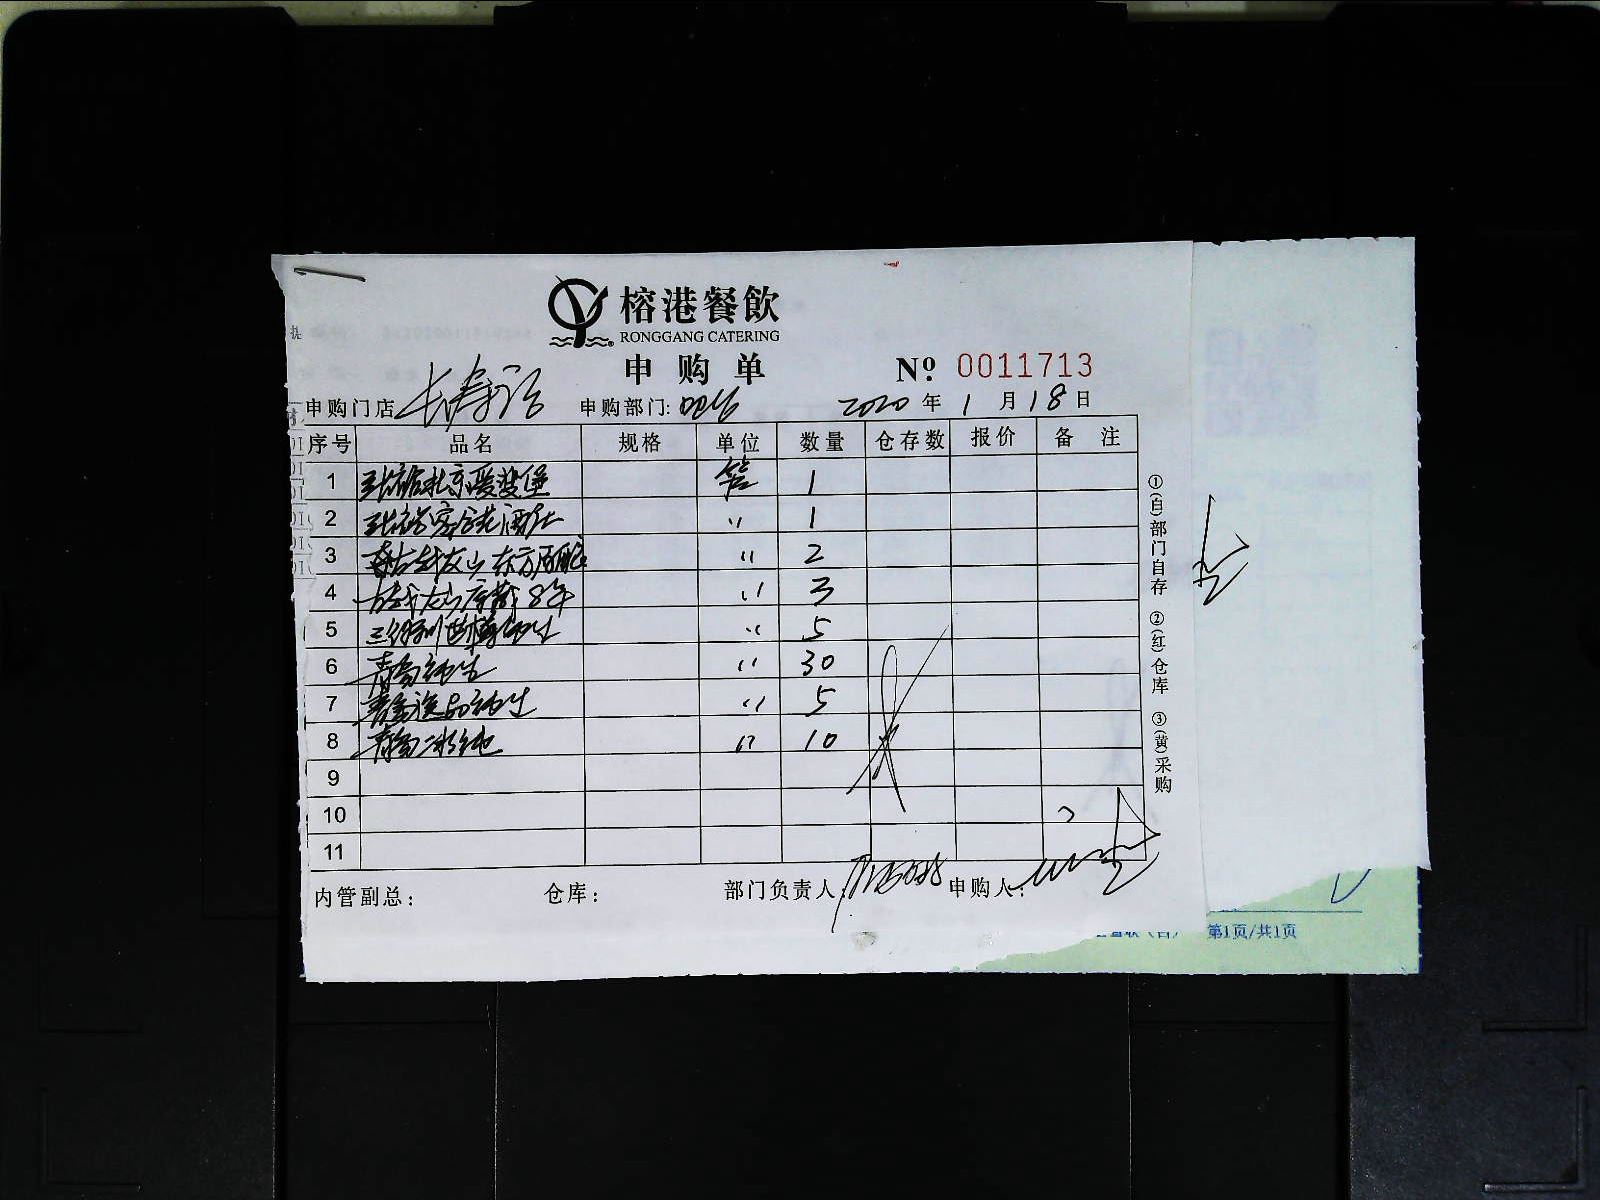 榕港餐飲
RONGGANG CATERING
申购单 Nº 0011713
申购门店 长寿路 申购部门: 吧台 2020 年 1 月 18 日
序号 品名 规格 单位 数量 仓存数 报价 备 注
1 张裕北京爱斐堡 箱 1
2 张裕 酒庄 〃 1
3 古越龙山东方原酿 〃 2
4 古越龙山库藏8年 〃 3
5 三得利 纯生 〃 5
6 青岛纯生 〃 30
7 青岛逸品纯生 〃 5
8 青岛冰纯 〃 10
9
10
11
内管副总: 仓库: 部门负责人: 申购人:
①(白)部门自存 ②(红)仓库 ③(黄)采购
第1页/共1页